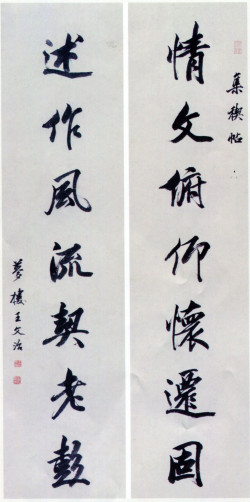 集禊帖
情文俯仰懷遷固
述作風流契老彭
夢樓王文治